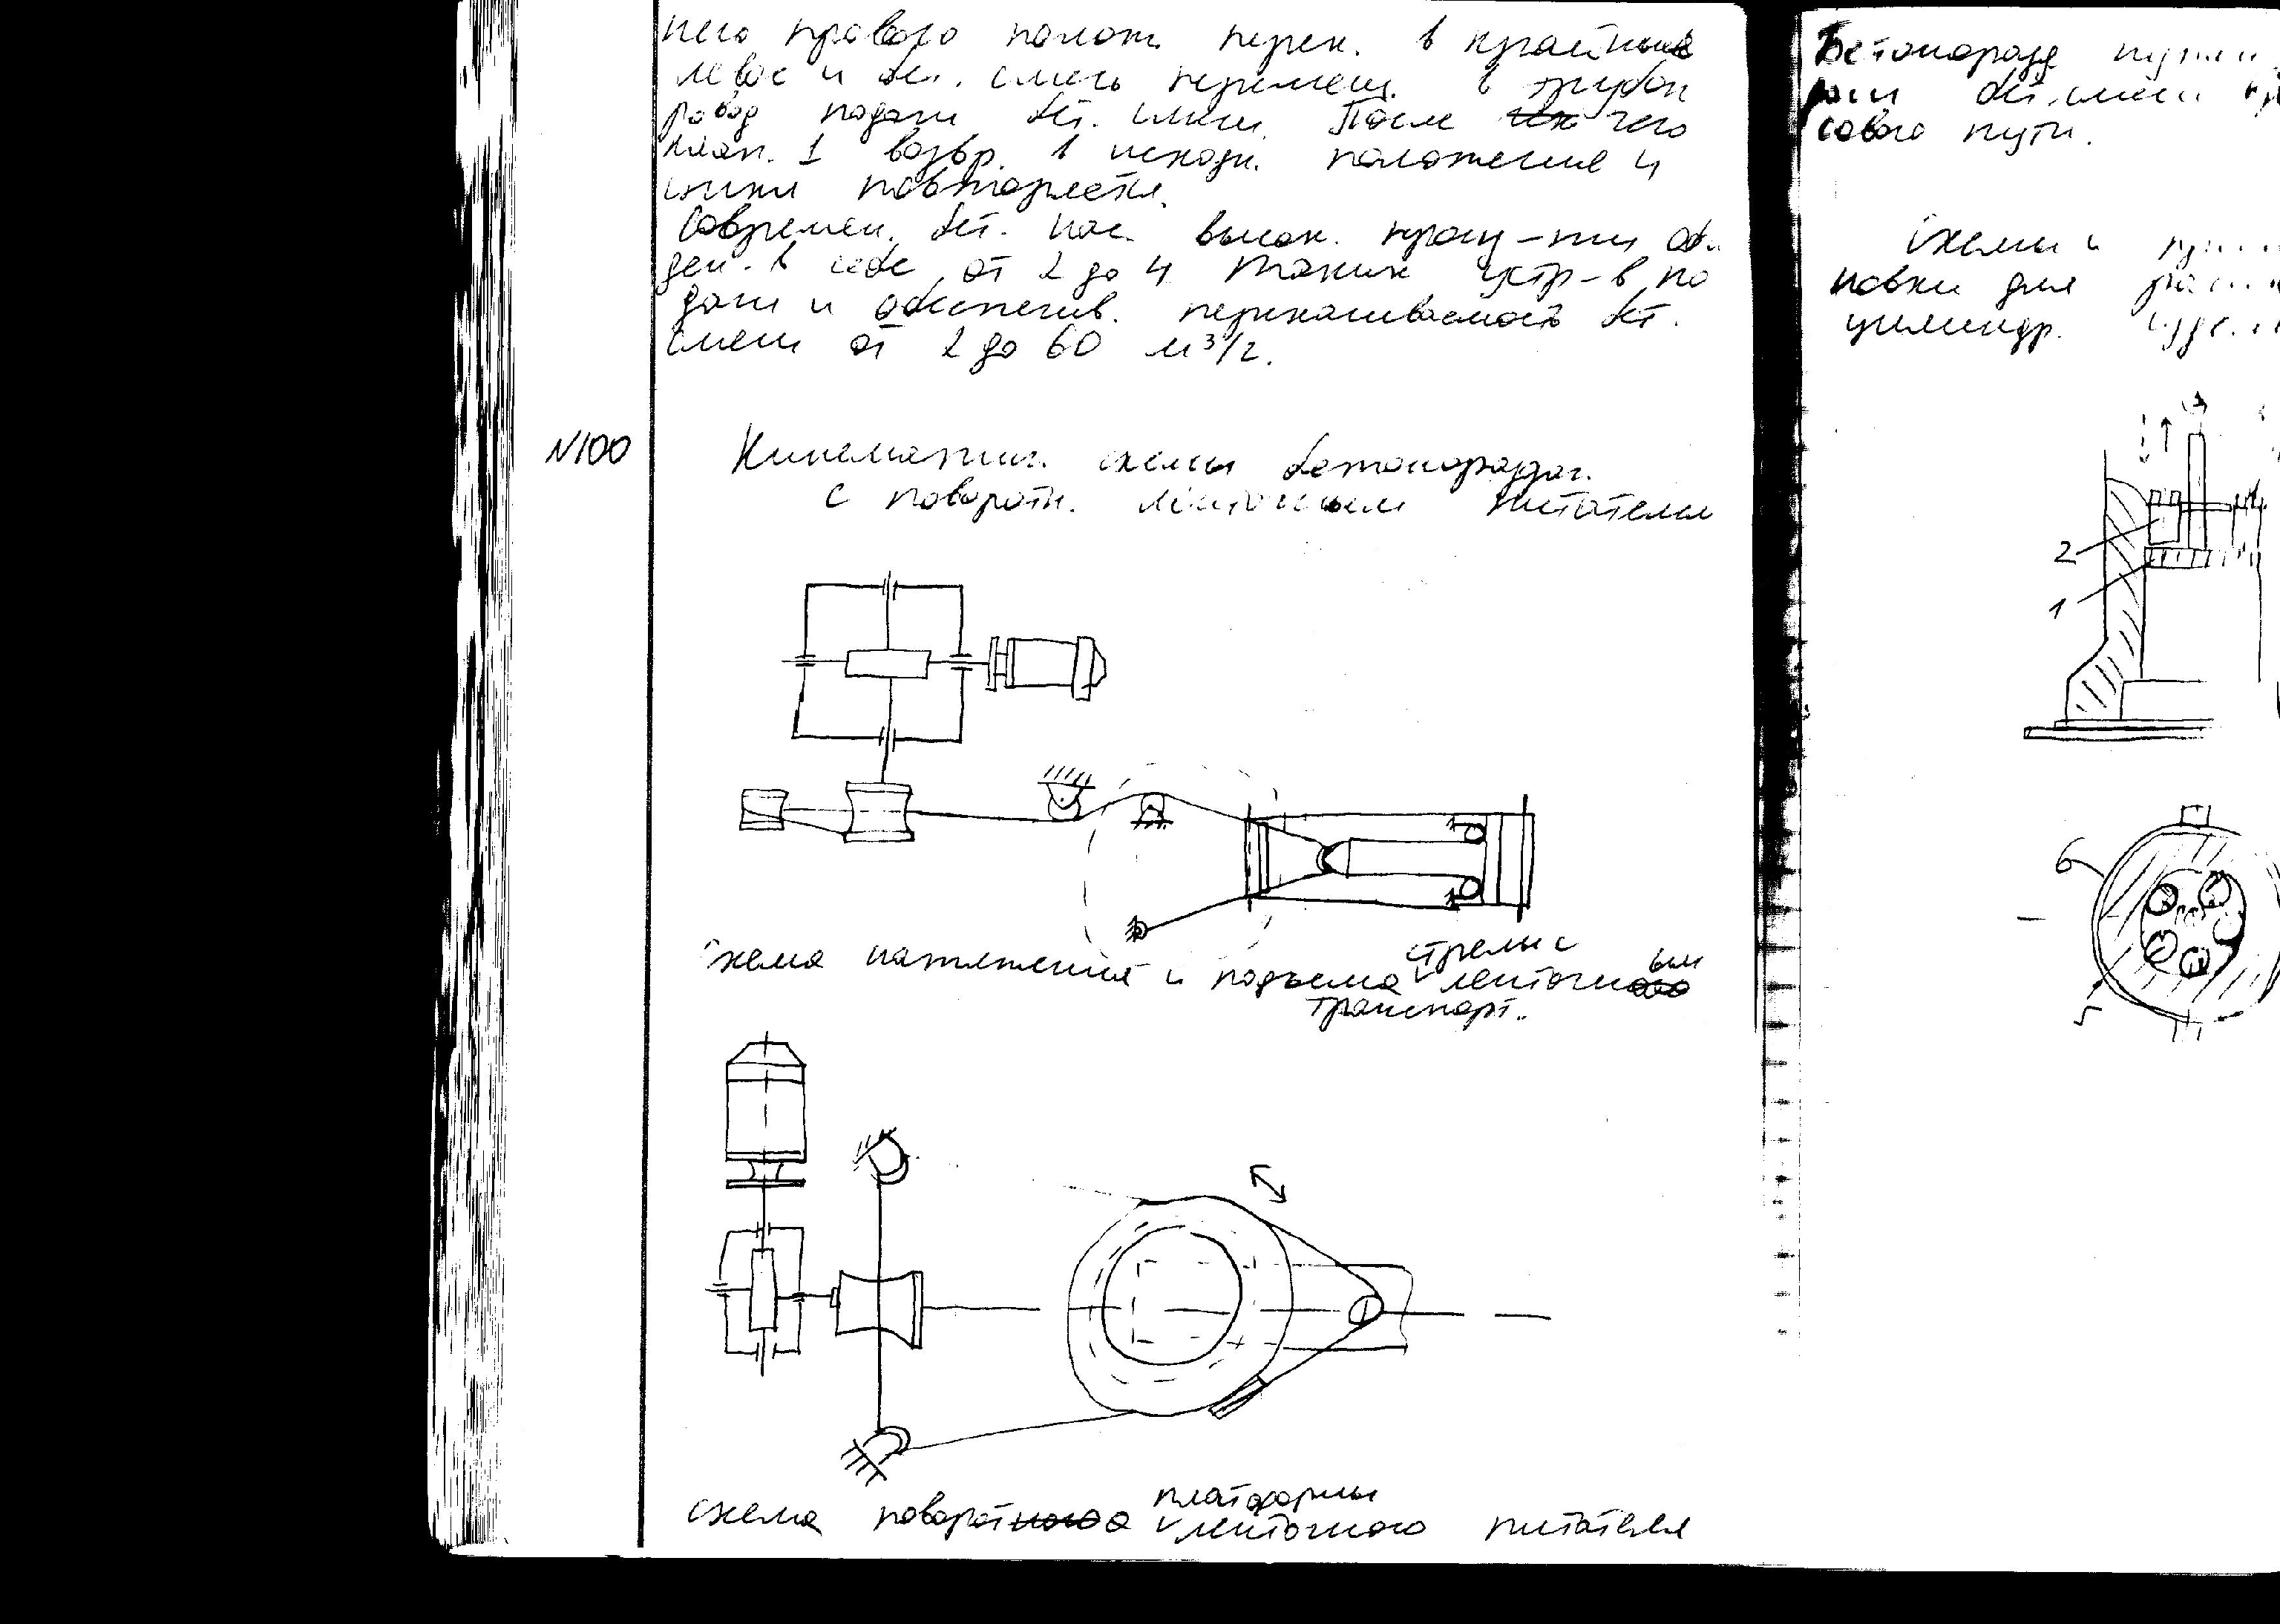 него правого полож. перек. в крайнее
левое и бет. смесь перемещ. в трубоп
ровод подачи бет. смеси. После чего
клап. 1 возвр. в исходн. положение и
цикл повторяется.
Современ. бет. нас. высок. произ-ти об.
ден. в себе от 2 до 4 таких устр-в по
дачи и обеспечив. перекачиваемость бет.
смеси от 2 до 60 м³/г.
N100
Кинематич. схемы бетонораздач.
с поворотн. ленточным питателем
схема натяжения и подъема стрелы с ленточным
транспорт.
схема поворота платформы ленточного питателя
Бетонаразд
бет. смеси
сового пути.
Схемы и
новки для
цилиндр.
2
1
6
5